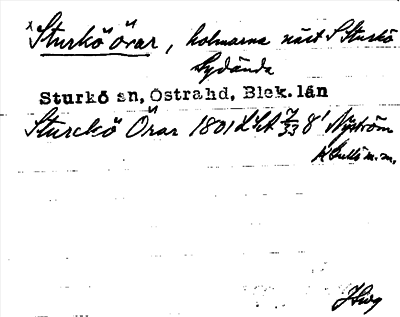 x Sturkö örar, holmarna näst S Sturkö
Sydända
Sturkö sn, Östrahd, Blek. län
Sturckö Örar 1801 LSA 7/33 8¹ Nyström